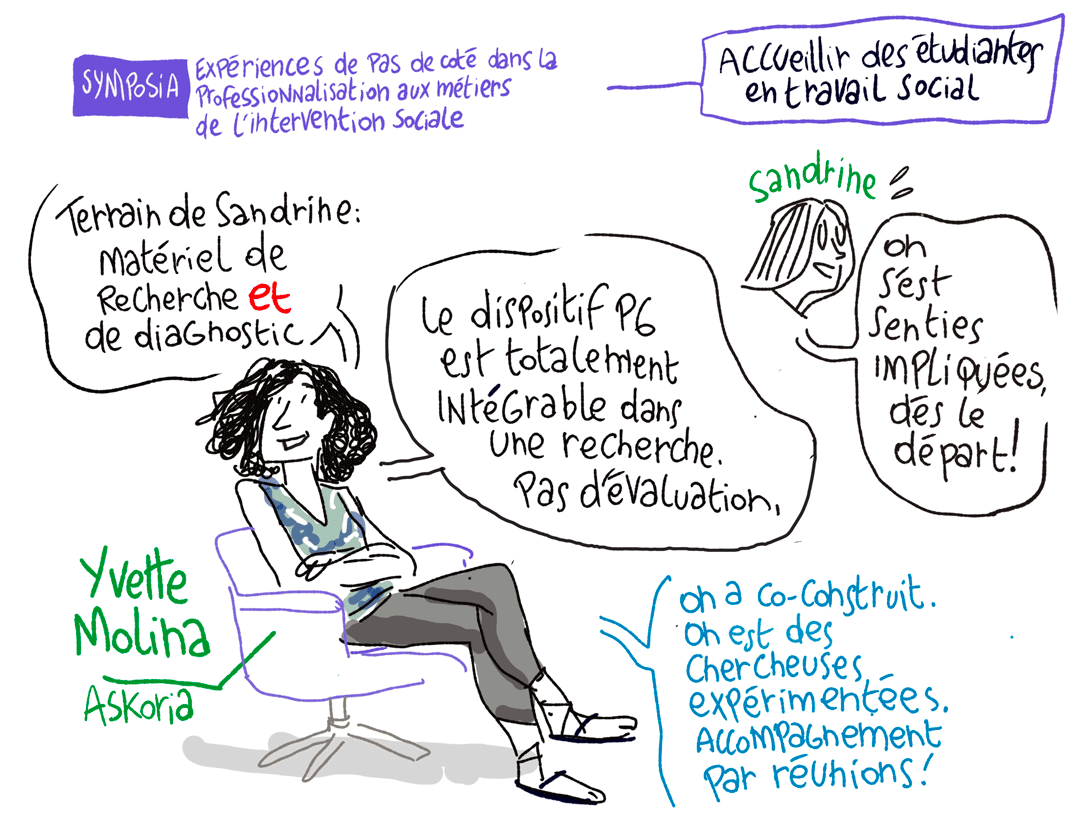 SYMPOSIA
Expériences de pas de coté dans la
Professionnalisation aux métiers
de l'intervention sociale
Accueillir des étudiantes
en travail social
Terrain de Sandrine:
matériel de
Recherche et
de diagnostic
Le dispositif P6
est totalement
Intégrable dans
une recherche.
Pas d'évaluation,
Sandrine
on
s'est
senties
IMPLIQUÉES,
dés le
départ!
Yvette
Molina
Askoria
on a co-construit.
on est des
chercheuses
expérimentées.
Accompagnement
par réunions!